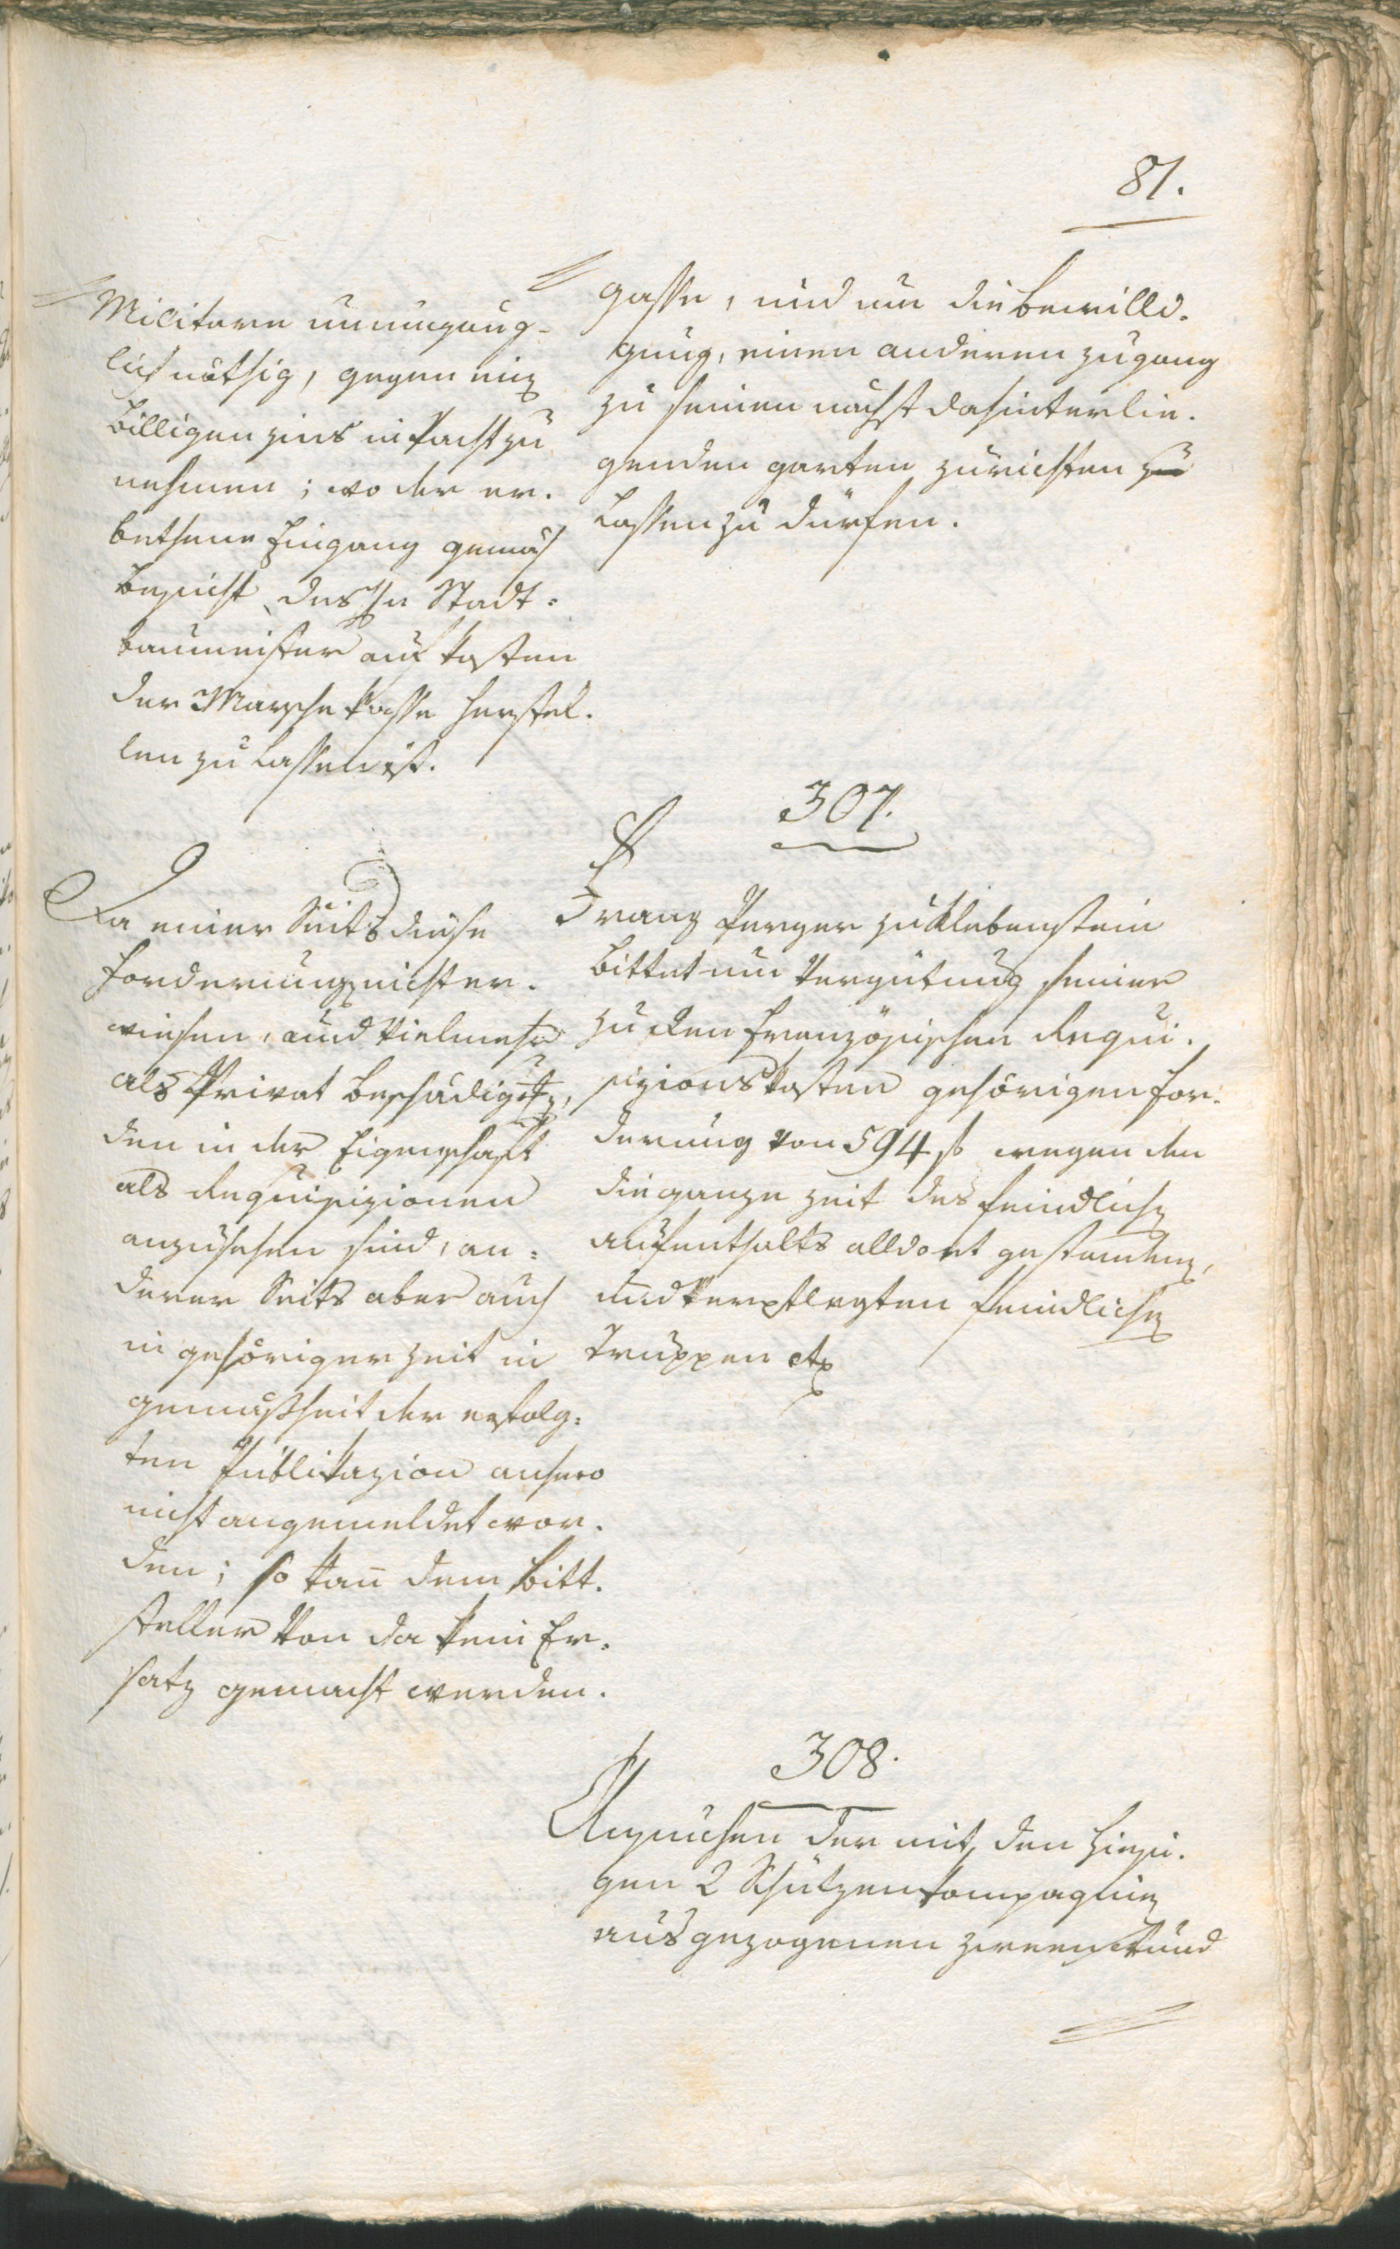 81.
Militare unumgäng-
lich nöthig, gegen ein
billigen zins in Pacht zu
nehmen; wo der er-
bethene Eingang gemäß
Bericht des Hn Stadt=
baumeister auf kosten
der Marsche kasse herstel-
len zu lassen ist.
gasse, und um die bewilli-
gung, einen anderen zugang
zu seinen nächst dahinterlie-
genden garten zurichten
lassen zu dürfen.
307.
Da einer Seits diese
forderung nicht er-
wiesen, und vielmehr
als Privat beschädigt,
den in der Eigenschaft
als Requisizionen
anzusehen sind, an=
derer Seits aber auch
in gehöriger zeit in
gemäßheit der erfolg=
ten Publikazion anhero
nicht angemeldet wor-
den; so kan̄ dem Bitt-
steller von da kein Er-
satz gemacht werden.
Franz Perger zu Klebenstein
bittet um Vergütung seiner
zu den französischen Requi-
sizionskosten gehörigen for-
derung von 594 f wegen den
die ganze zeit des feindlich
aufenthalts alldort gestanden,
und verpflegten feindlich
Truppen etc
308.
Ansuchen der mit den hiesi-
gen 2 Schützen kompagnien
ausgezogenen zween Wund